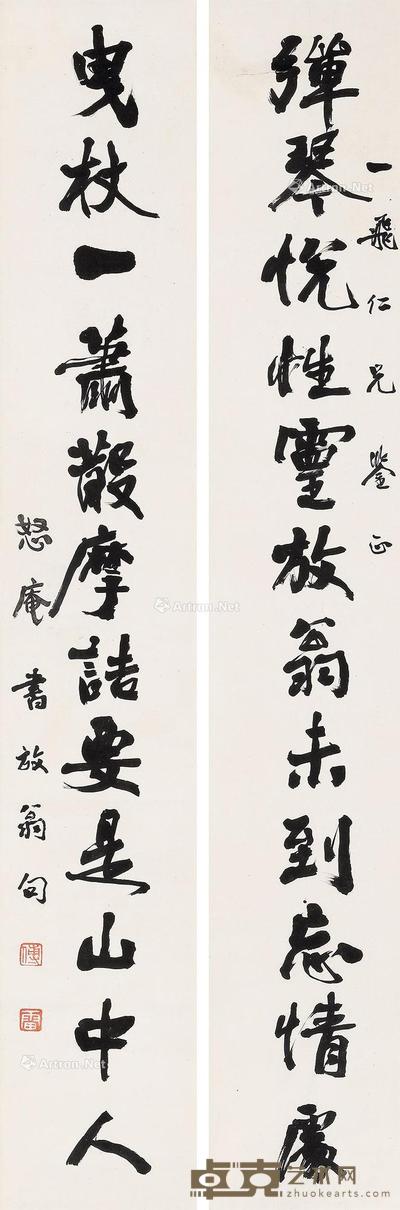 一飛仁兄鑒正
彈琴悅性靈放翁未到忘情處
曳杖一蕭散摩詰要是山中人
怒庵書放翁句
傅
雷
Artron.Net
Artron.Net
Artron.Net
Artron.Net
卓克艺术网
zhuokearts.com